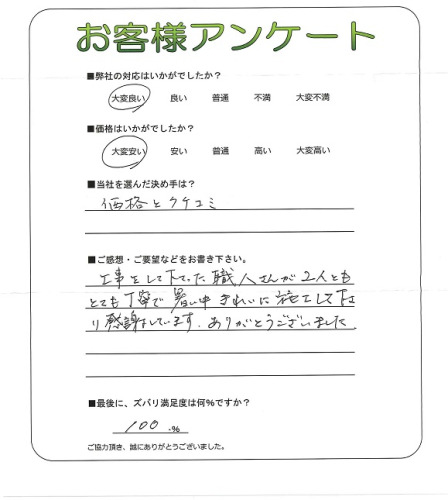 お客様アンケート
■弊社の対応はいかがでしたか？
大変良い 良い 普通 不満 大変不満
■価格はいかがでしたか？
大変安い 安い 普通 高い 大変高い
■当社を選んだ決め手は？
価格とクチコミ
■ご感想・ご要望などをお書き下さい。
工事をして下さった職人さんが2人とも
とても丁寧で暑い中きれいに施工して下さ
り感謝しています。ありがとうございました
■最後に、ズバリ満足度は何%ですか？
100 %
ご協力頂き、誠にありがとうございました。